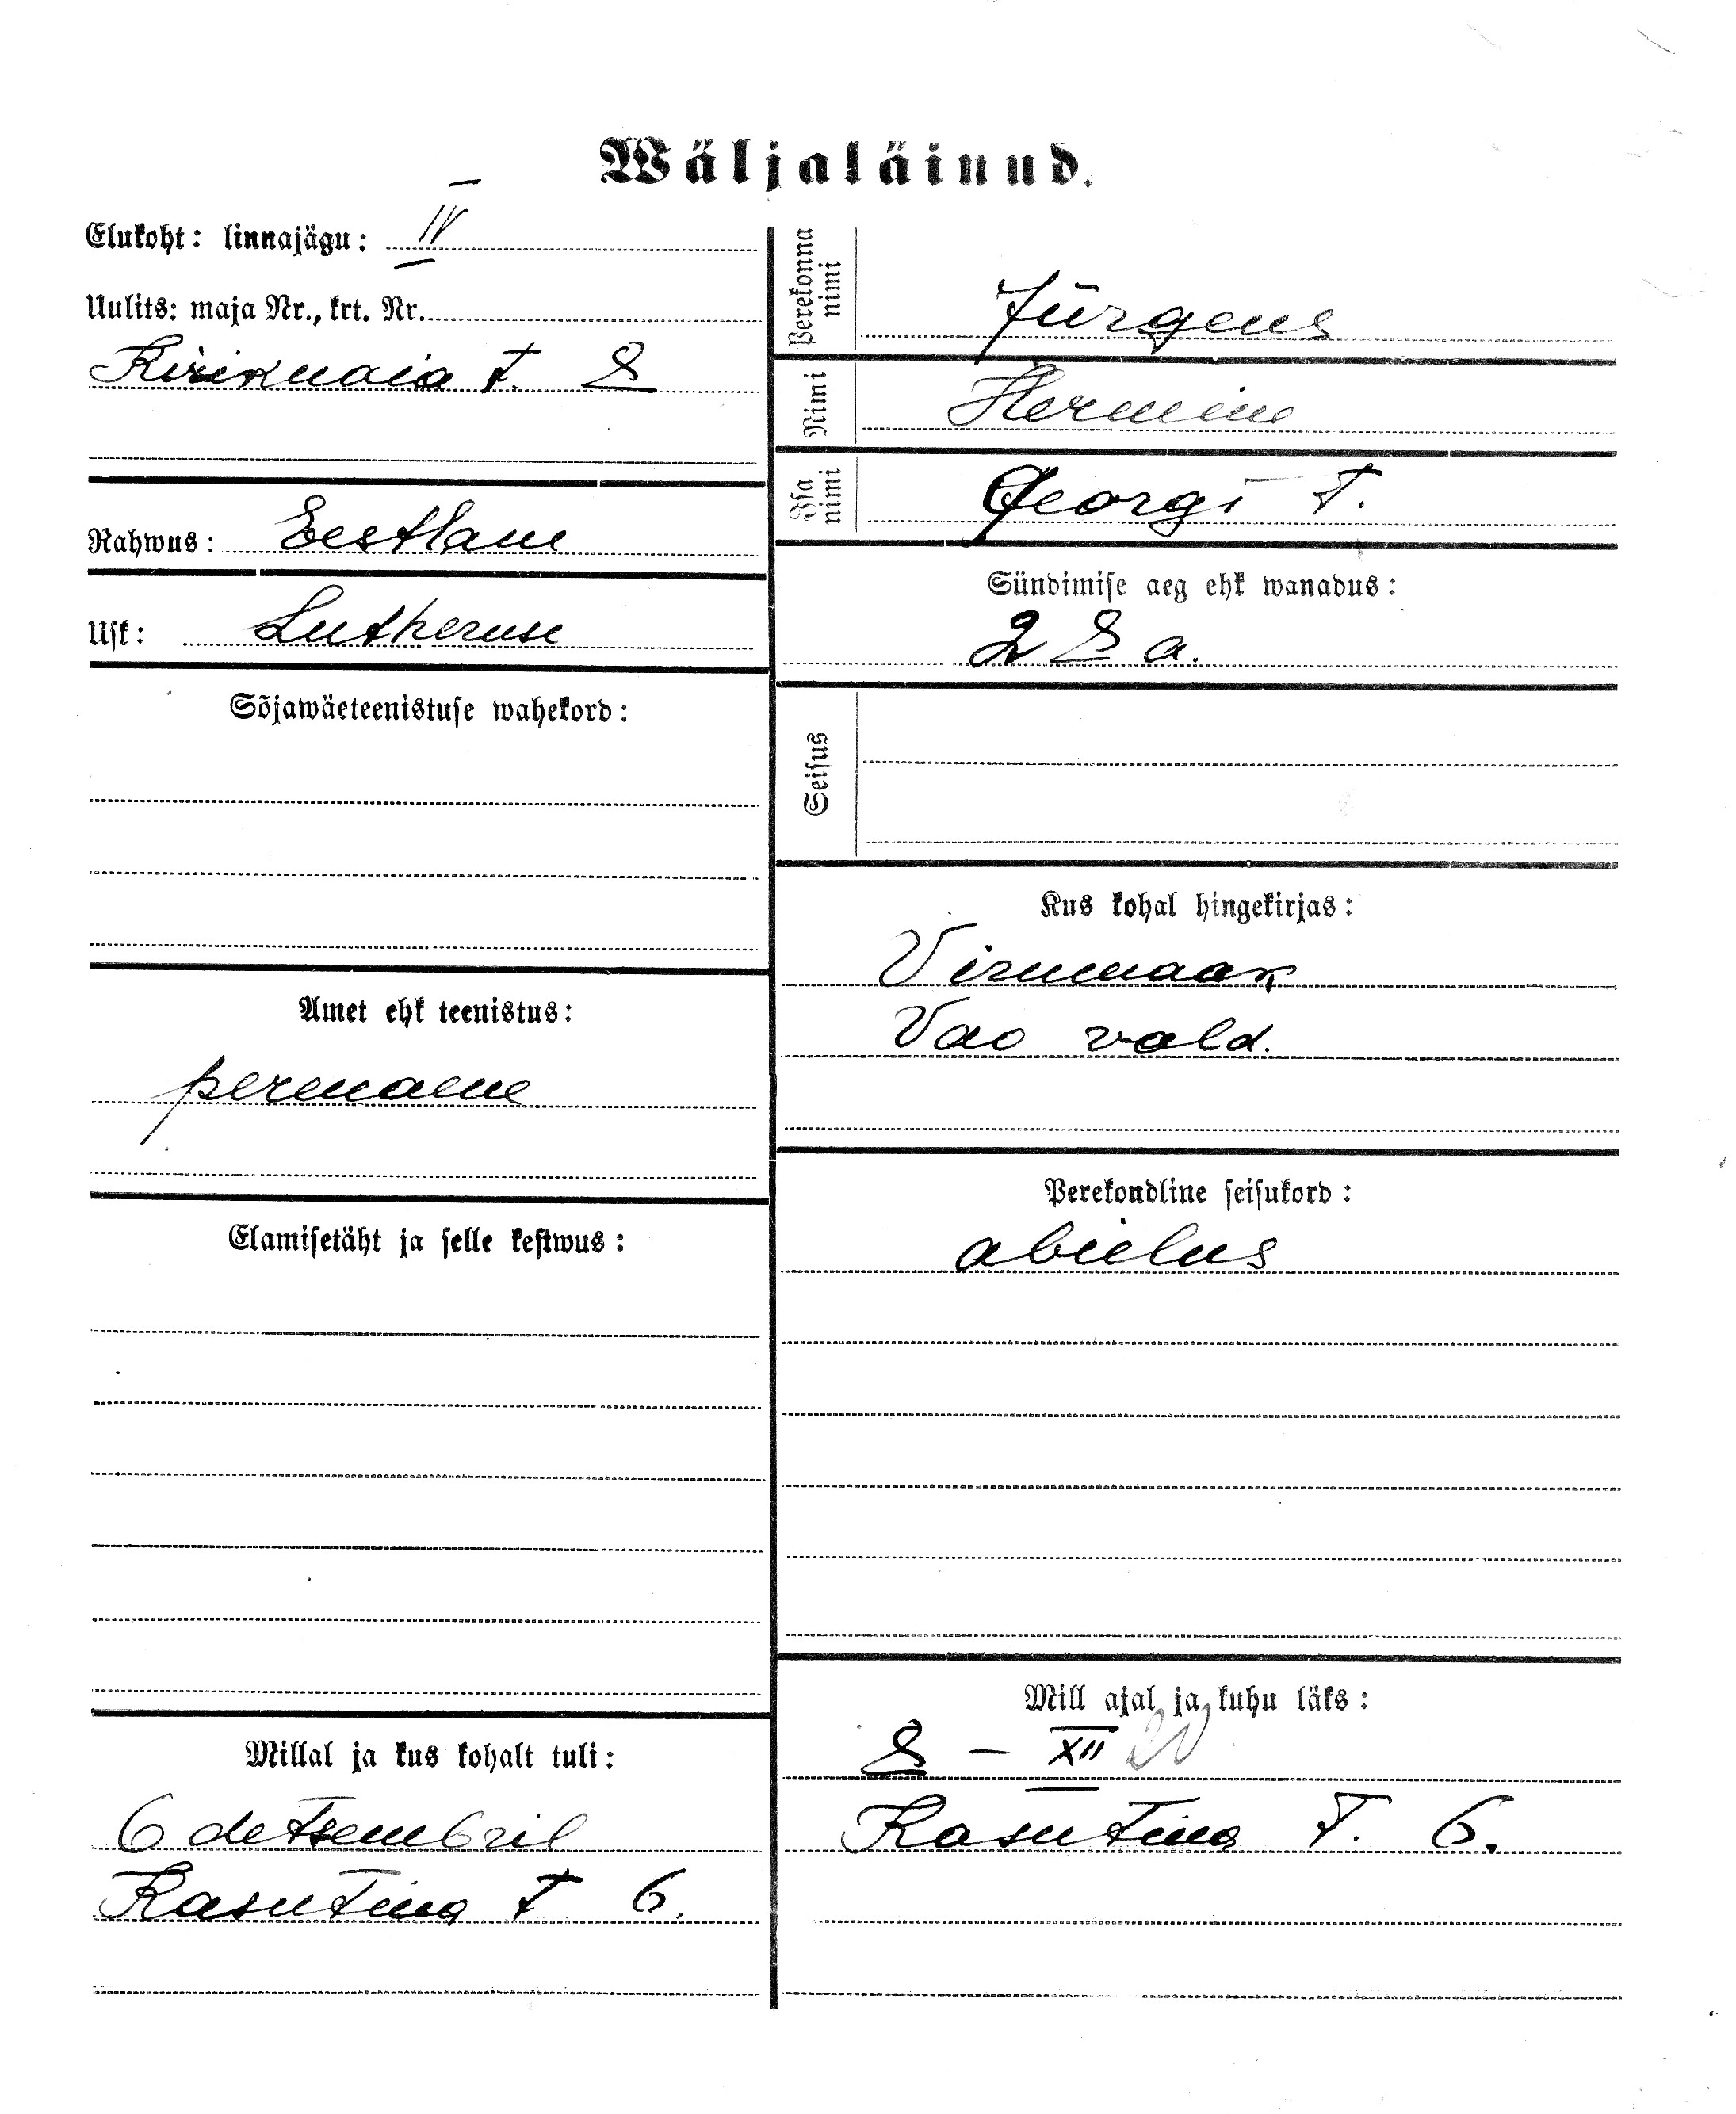 Wäljaläinud.
Elukoht: linnajägu: IV
Uulits: maja Nr., krt. Nr.
Kirikuaia t. 8
Rahwus: Eestlane
Usk: Lutheruse
Sõjawäeteenistuse wahekord:
Amet ehk teenistus:
perenaene
Elamisetäht ja selle kestwus:
Millal ja kus kohalt tuli:
6 detsembril
Kasutina t 6.
Perekonna nimi Jürgens
Nimi Hermine
Isa nimi Georgi t.
Sündimise aeg ehk wanadus:
28 a.
Seisus
Kus kohal hingekirjas:
Virumaak
Vao vald.
Perekondline seisukord:
abielus
Mill ajal ja kuhu läks:
8 – XII 20
Kasutina T. 6.